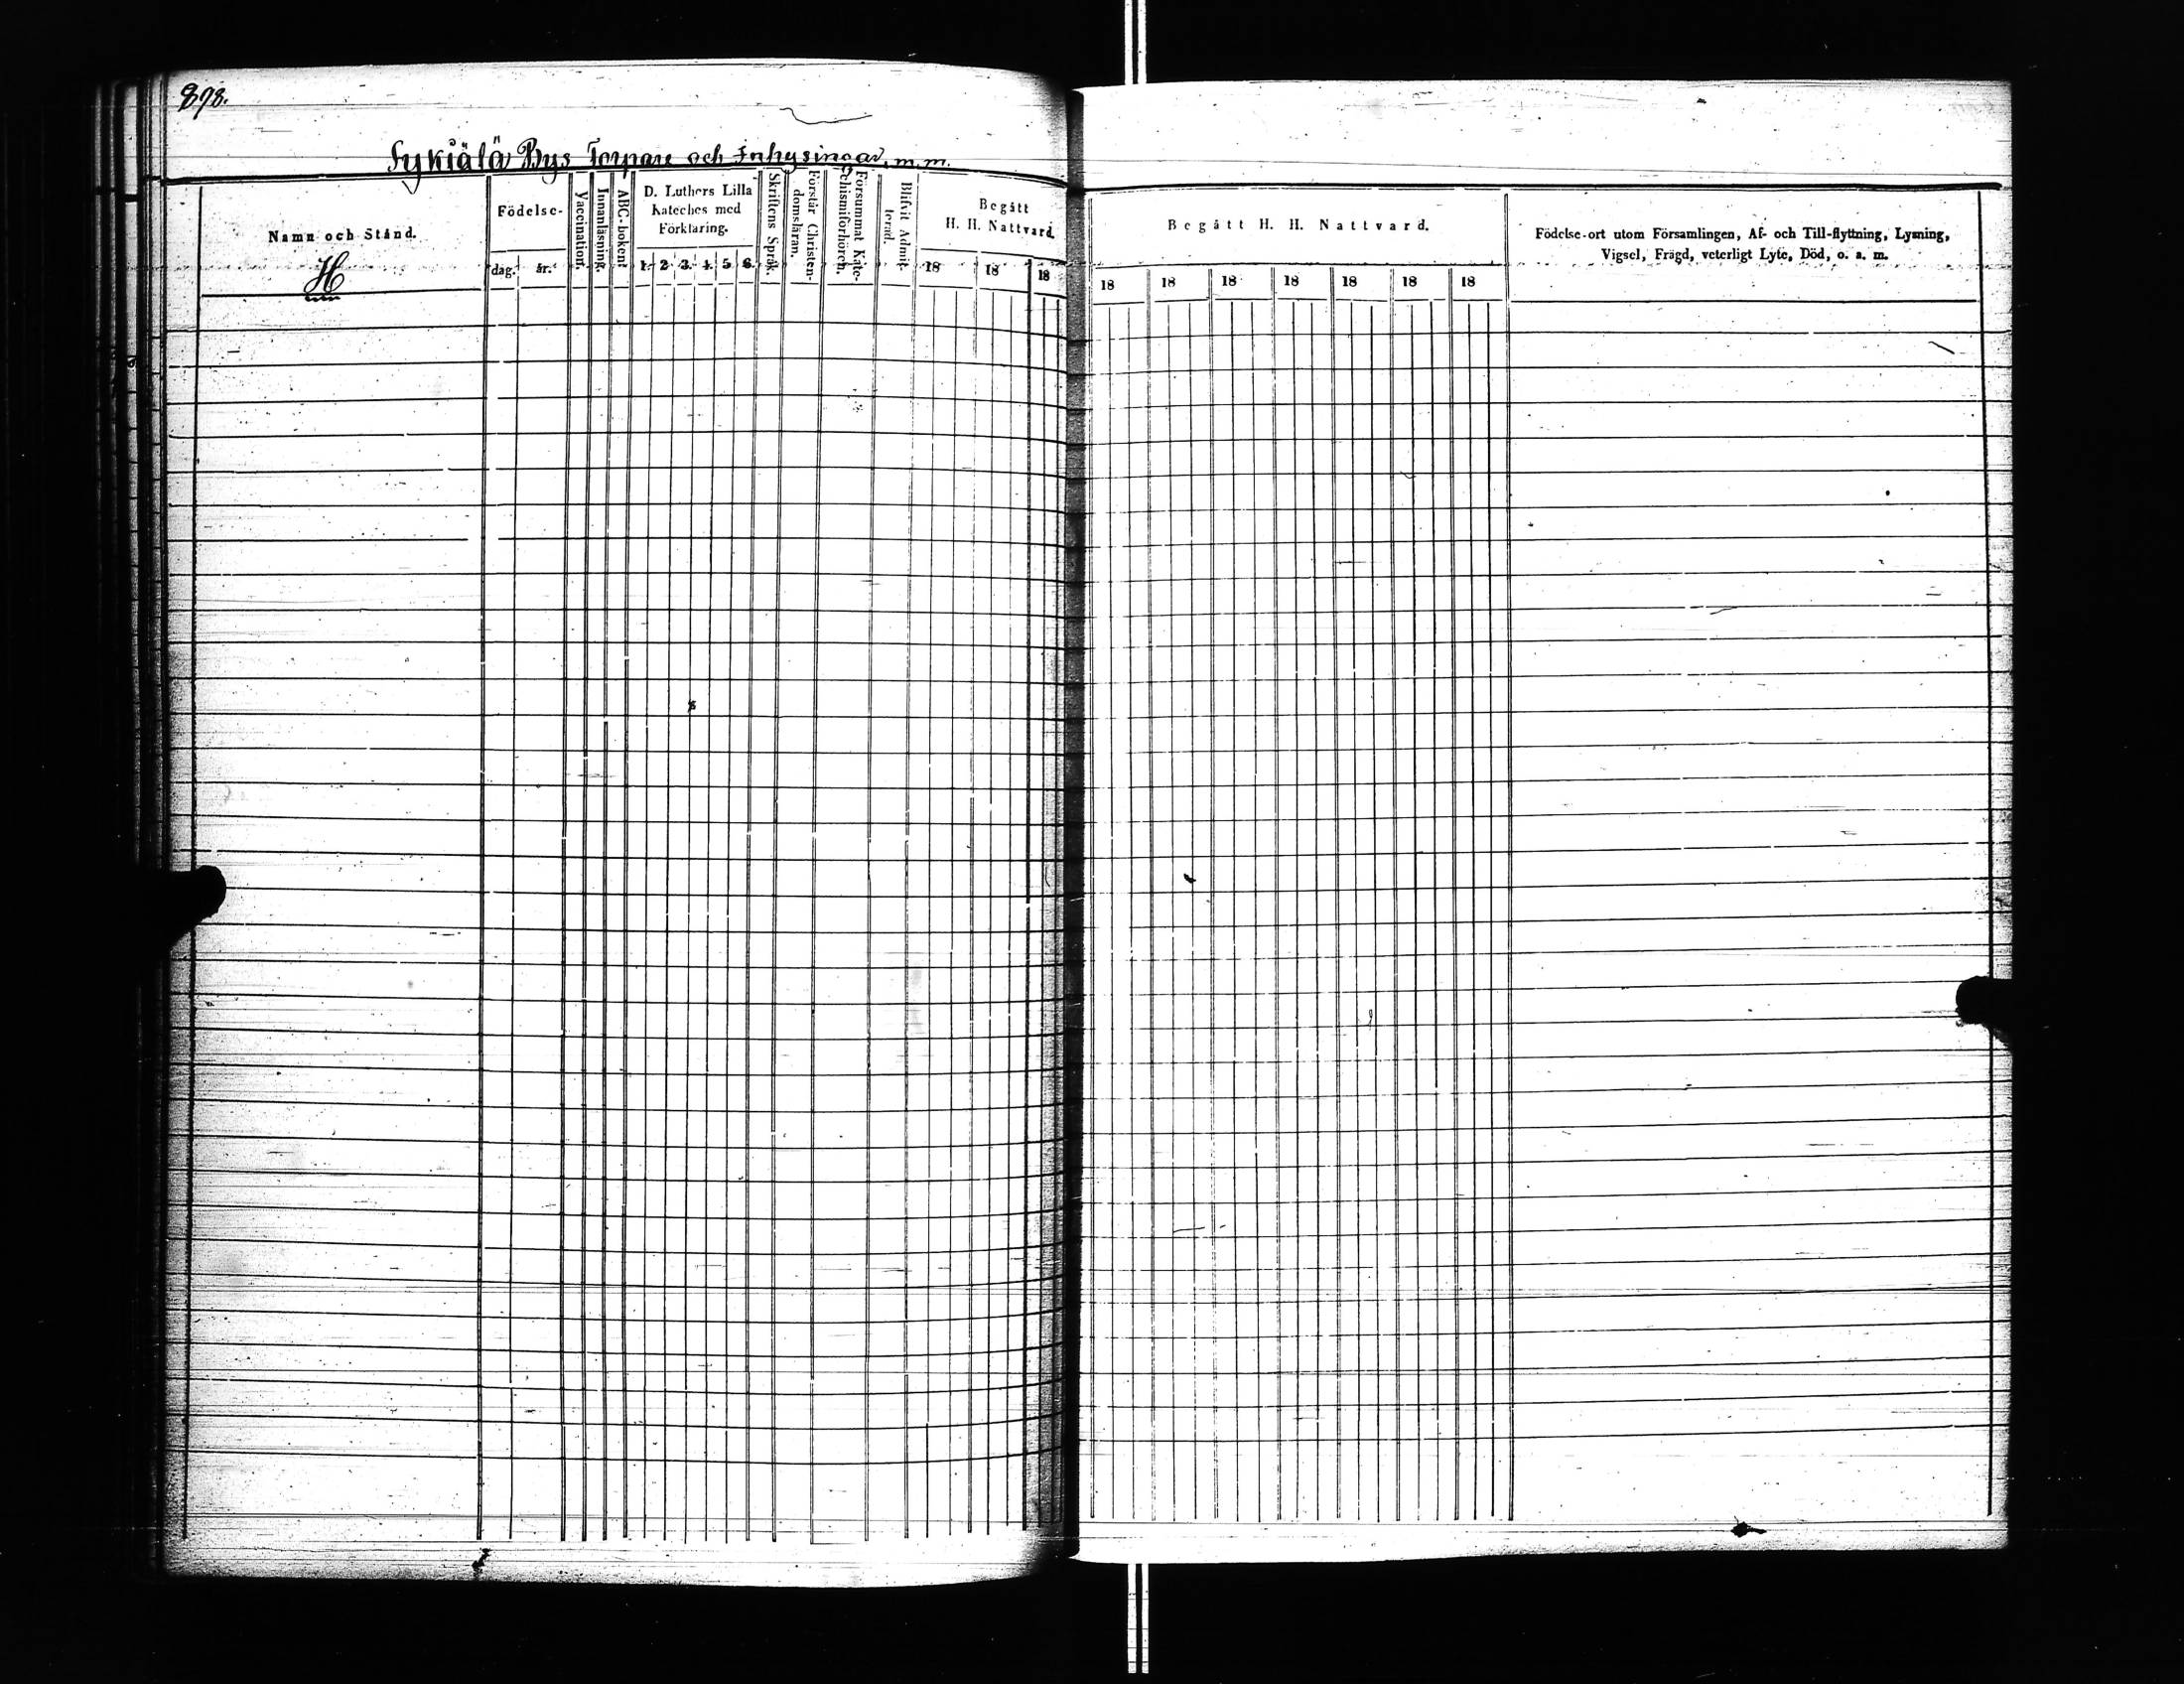 898.
Sykiälä Bys Torpare och Inhysingar, m. m.
Namn och Stånd.
H
Födelse-
dag. år.
Vaccination.
Innanläsning.
ABC-boken.
D. Luthers Lilla
Kateches med
Förklaring.
1. 2 3. 4. 5 6.
Skriftens Språk.
Förstår Christen-
domsläran.
Försummat Kate-
chismiförhören.
Blifvit Admit-
terad.
Begått
H. H. Nattvard.
18 18 18
Begått H. H. Nattvard.
18 18 18 18 18 18 18
Födelse-ort utom Församlingen, Af- och Till-flyttning, Lysning,
Vigsel, Frägd, veterligt Lyte, Död, o. a. m.